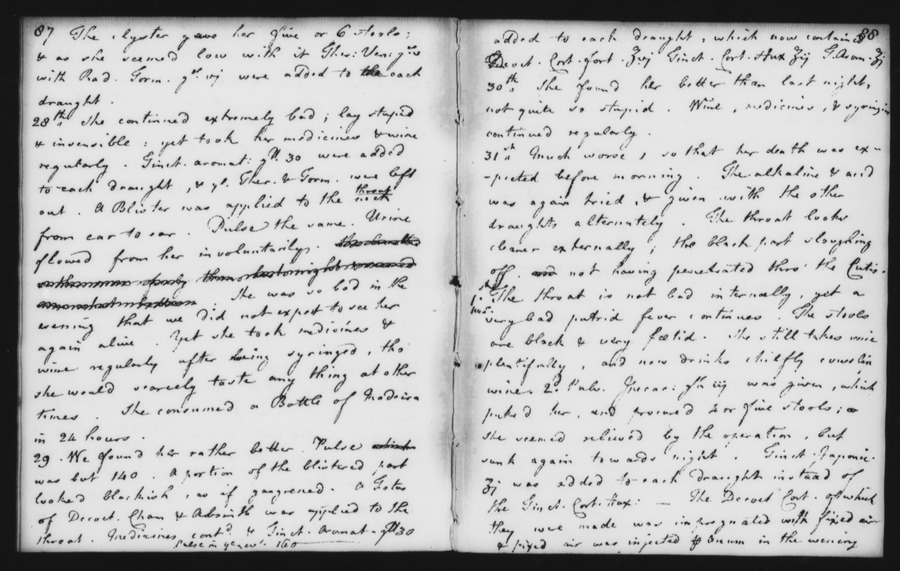 87 The clyster gave her five or 6 stools;
& as she seemed low with it Ther: Ven: grs
with Rad. Torm. gr. vj were added to the each
draught.
28th She continued extremely bad; lay stupid
& insensible; yet took her medicines & wine
regularly. Tinct. aromat: gtt. 30 were added
to each draught, & ye. Ther. & Torm. were left
out. A Blister was applied to the throat neck
from ear to ear. Pulse the same. Urine
flowed from her involuntarily.
She was so bad in the
evening that we did not expect to see her
again alive. Yet she took medicines &
wine regularly after being syringed, tho'
she would scarcely taste any thing at other
times. She consumed a Bottle of Madeira
in 24 hours.
29. We found her rather better. Pulse
was but 140. A portion of the blistered part
looked blackish, as if gangrened. A Fotus
of Decoct. Cham & Absinth was applied to the
throat. Medicines contd. & Tinct. Aromat. gtt 30
Pulse in yе even. 160
88
added to each draught, which now contained
Decoct. Cort. fort. Tinct. Cort. Hux T. Arom.
30th She found her better than last night,
not quite so stupid. Wine, medicines, & syringing
continued regularly.
31st Much worse, so that her death was ex-
-pected before morning. The alkaline & acid
was again tried, & given with the other
draughts alternately. The throat looks
cleaner externally; the black part sloughing
off, not having penetrated thro' the Cutis.
1st The throat is not bad internally, yet a
very bad putrid fever continues. The stools
are black & very foetid. She still takes wine
plentifully, and now drinks chiefly
wine. 2d Pulv. Ipecac: gr iij was given, which
puked her, and procured 4 or five stools;
she seemed relieved by the operation, but
sunk again towards night. Tinct. Japonic.
was added to each draught instead of
the Tinct. Cort. Hux: — The Decoct Cort. of which
they were made was impregnated with fixed air
& fixed air was injected in the evening